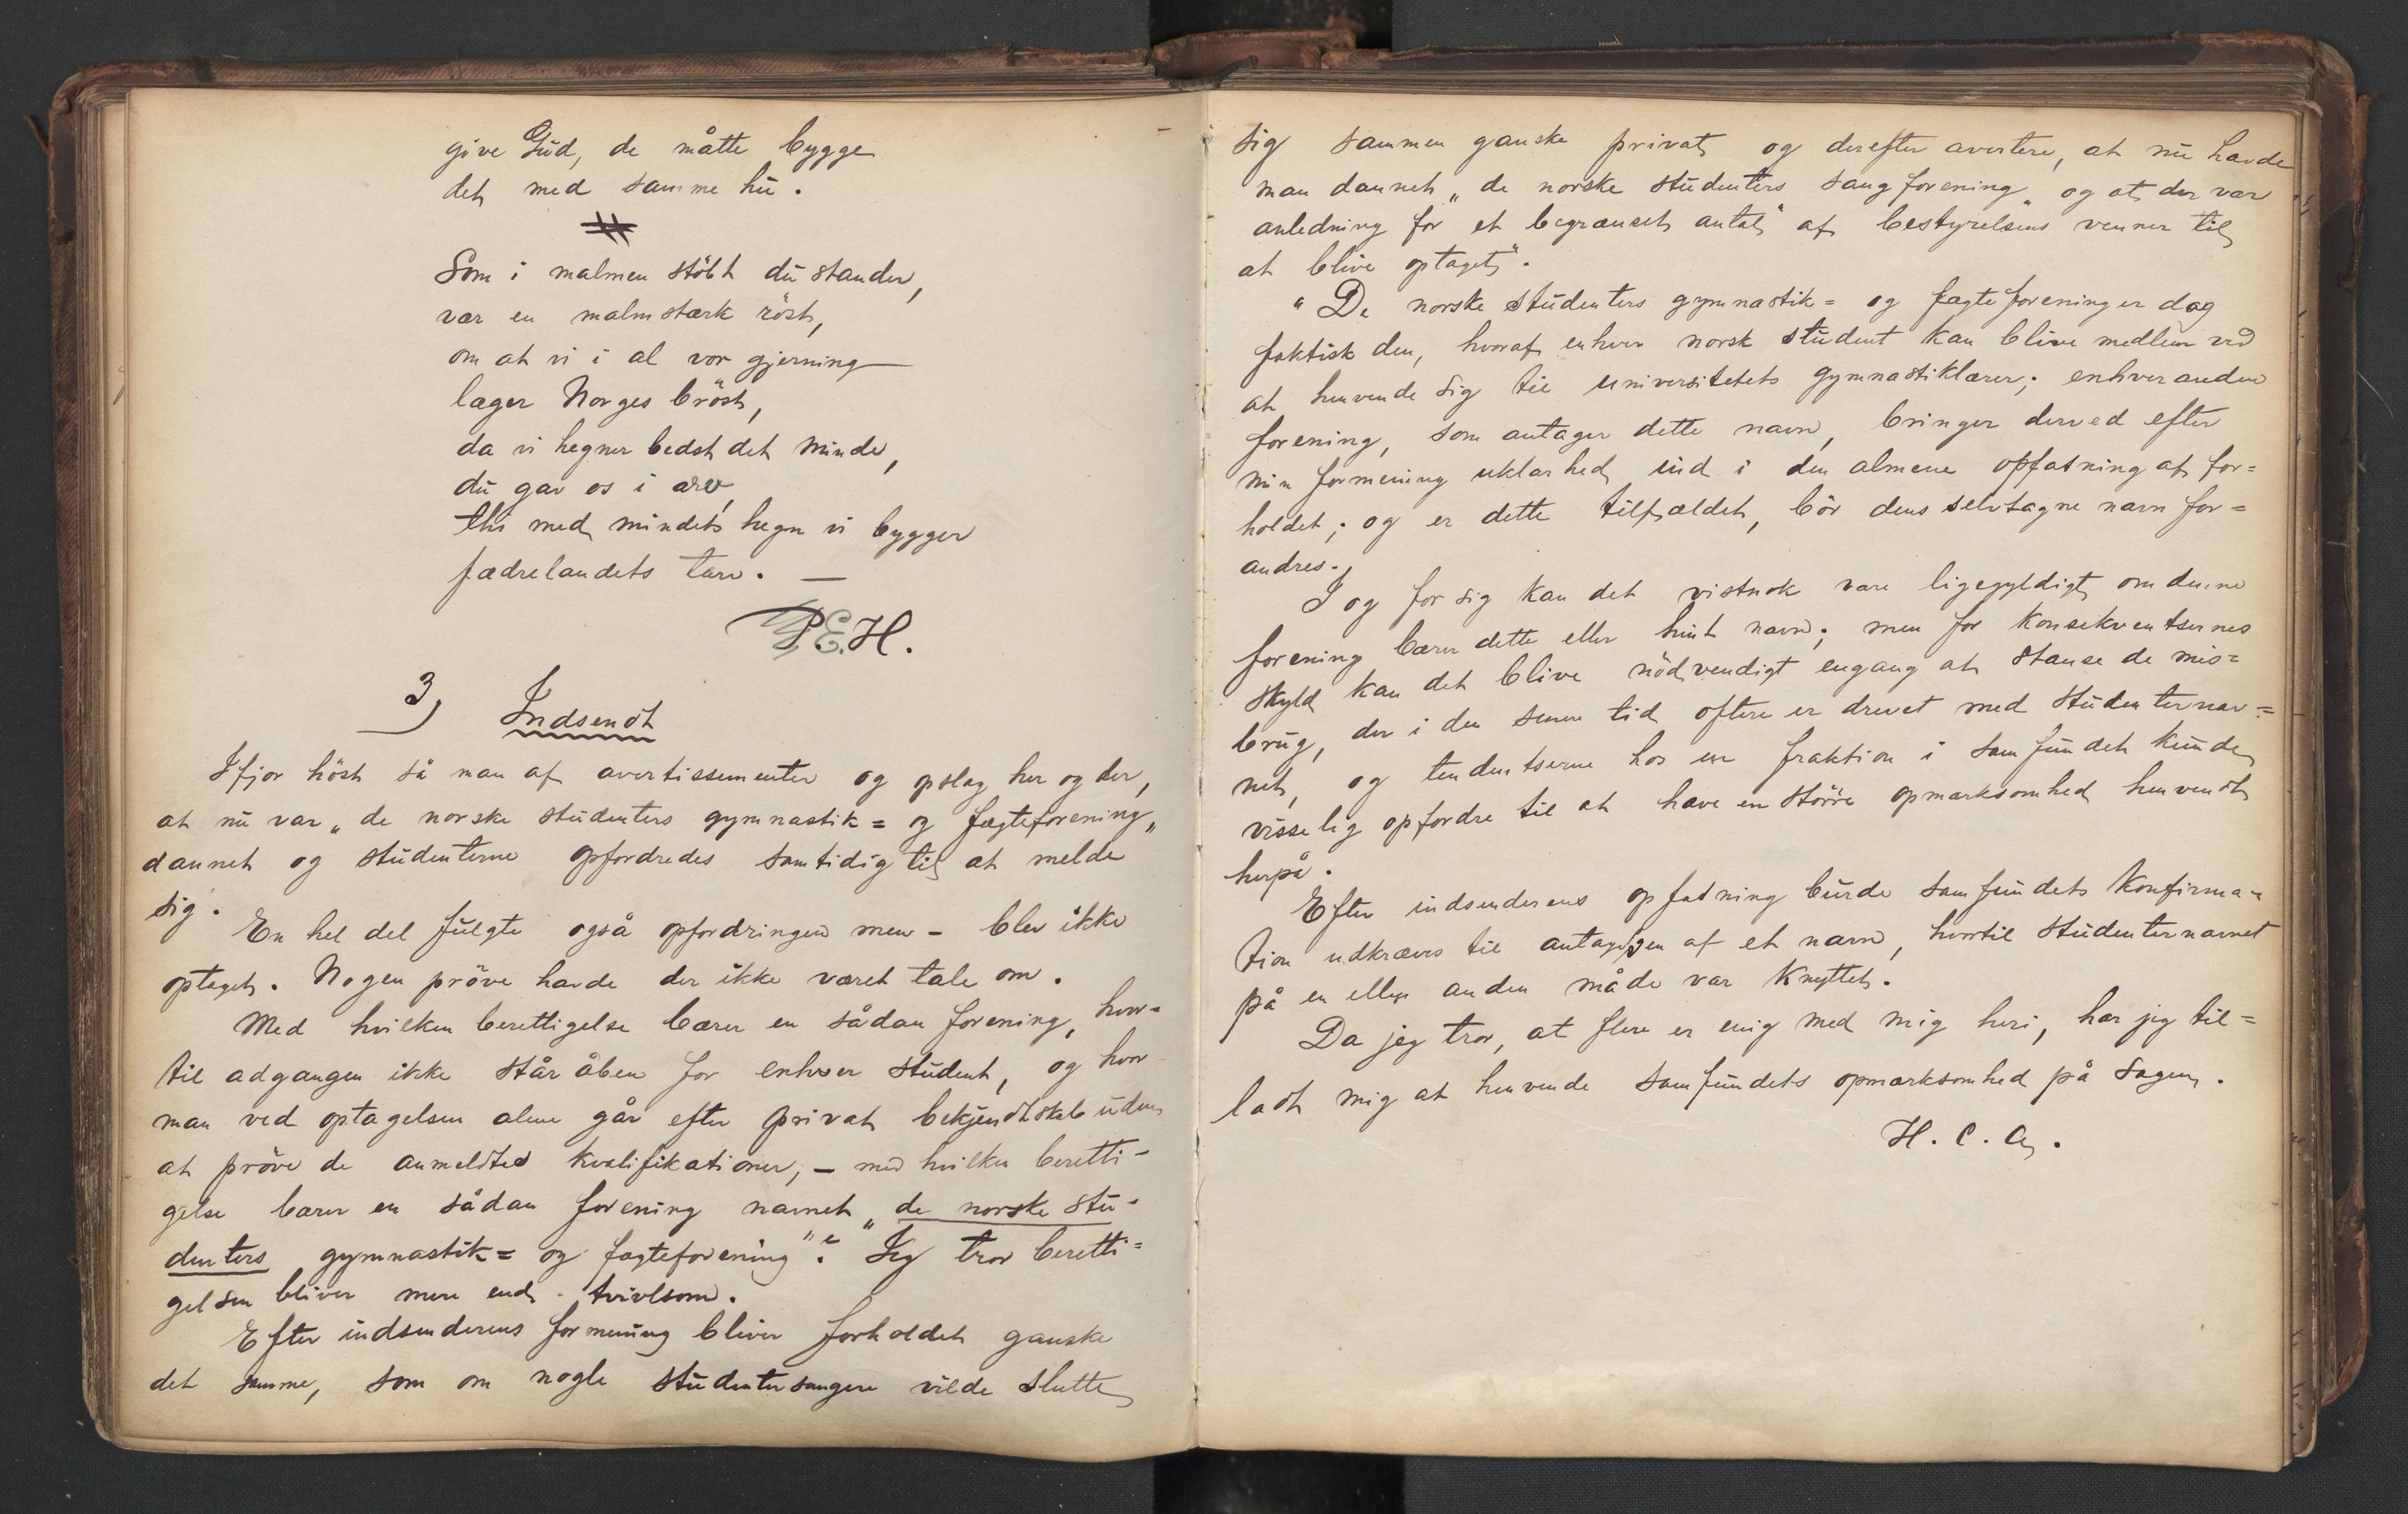 give Gud, de måtte bygge
det med samme hu.
Som i malmen støbt du stander,
vær en malmstærk röst,
om at vi i al vor gjerning
læger Norges bröst,
da vi hegner bedst det minde,
du gav os i arv,
thi med mindets hegn vi bygger
fædrelandets tarv. —
P.E.H.
3) Indsendt
Ifjor höst så man af avertissementer og opslag her og der,
at nu var „de norske studenters gymnastik= og fægteforening„
dannet og studenterne opfordredes samtidig til at melde
sig.
En hel del fulgte også opfordringen men – blev ikke
optaget. Nogen pröve havde der ikke været tale om.
Med hvilken berettigelse bærer en sådan forening, hvor=
til adgangen ikke står åben for enhver student, og hvor
man ved optagelsen alene går efter privat bekjendtskab uden
at pröve de anmeldtes kvalifikationer, – med hvilken beretti-
gelse bærer en sådan forening navnet „de norske stu-
denters gymnastik= og fægteforening"? Jeg tror beretti=
gelsen bliver mere end - tvivlsom.
Efter indsenderens formening bliver forholdet ganske
det samme, som om nogle studentersangere vilde slutte
sig sammen ganske privat og derefter avertere, at nu havde
man dannet „de norske studenters sangforening" og at der var
anledning for et begrænset antal" af bestyrelsens venner til
at blive optaget".
"De norske studenters gymnastik= og fægteforening er dog
faktisk den, hvoraf enhver norsk student kan blive medlem ved
at henvende sig til universitetets gymnastiklærer; enhver anden
forening, som antager dette navn, bringer derved efter
min formening uklarhed ind i den almene opfatning af for=
holdet; og er dette tilfældet, bör dens selvtagne navn for=
andres.
I og for sig kan det vistnok være ligegyldigt, om denne
forening bærer dette eller hint navn; men for konsekventsernes
skyld kan det blive nödvendigt engang at stanse de mis=
brug, der i den senere tid oftere er drevet med studenternav=
net, og tendentserne hos en fraktion i samfundet kunde
visselig opfordre til at have en större opmærksomhed henvendt
herpå.
Efter indsenderens opfatning burde samfundets konfirma-
tion udkræves til antagelsen af et navn, hvortil studenternavnet
på en eller anden måde var knyttet.
Da jeg tror, at flere er enig med mig heri, har jeg til=
ladt mig at henvende samfundets opmærksomhed på sagen.
H. C. A.